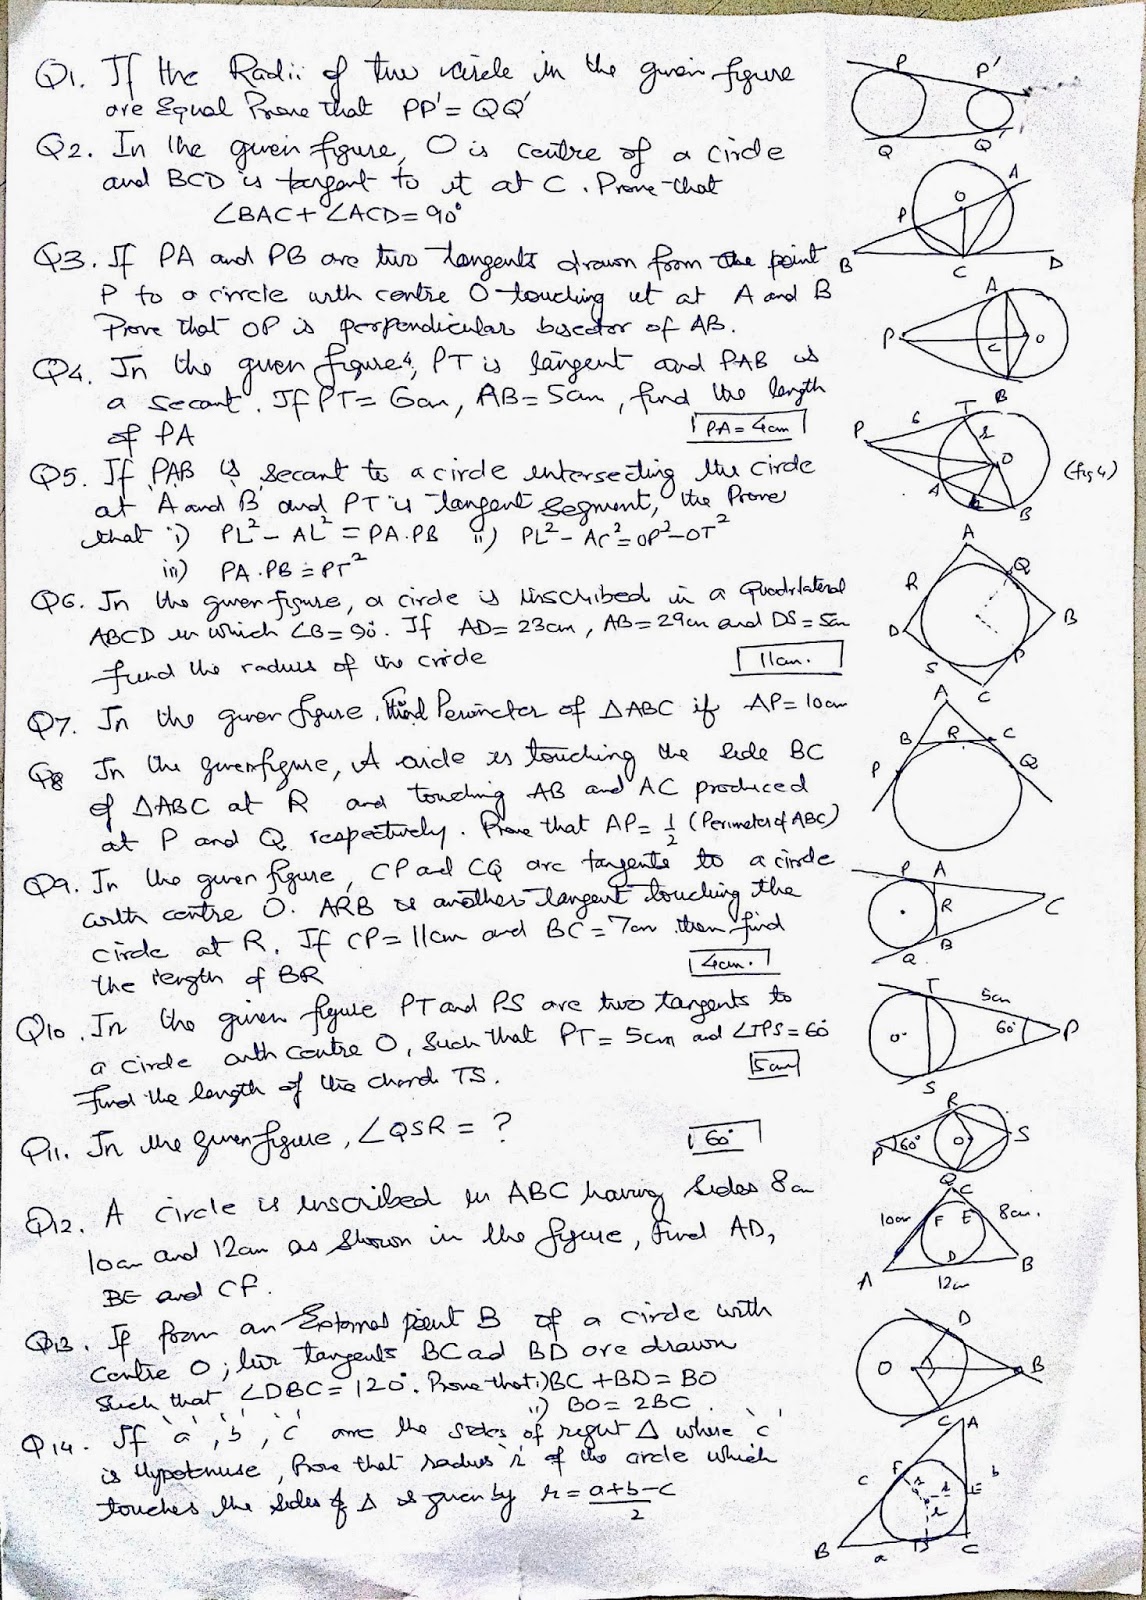 Q1. If the Radii of two circle in the given figure
are Equal Prove that PP' = QQ'
Q2. In the given figure, O is centre of a circle
and BCD is tangent to it at C. Prove that
∠BAC + ∠ACD = 90°
Q3. If PA and PB are two tangents drawn from the point
P to a circle with centre O touching it at A and B
Prove that OP is perpendicular bisector of AB.
Q4. In the given figure, PT is tangent and PAB is
a secant. If PT = 6cm, AB = 5cm, find the length
of PA
PA = 4cm
Q5. If PAB is secant to a circle intersecting the circle
at 'A and B' and PT is tangent segment, the Prove
that i) PL² - AL² = PA.PB ii) PL² - AC² = OP² - OT²
iii) PA.PB = PT²
Q6. In the given figure, a circle is inscribed in a Quadrilateral
ABCD in which ∠B = 90°. If AD = 23cm, AB = 29cm and DS = 5cm
find the radius of the circle
11cm.
Q7. In the given figure, Find Perimeter of △ABC if AP = 10cm
Q8 In the given figure, A circle is touching the side BC
of △ABC at R and touching AB and AC produced
at P and Q respectively. Prove that AP = 1/2 (Perimeter of ABC)
Q9. In the given figure, CP and CQ are tangents to a circle
with centre O. ARB is another tangent touching the
circle at R. If CP = 11cm and BC = 7cm then find
the length of BR
4cm.
Q10. In the given figure PT and PS are two tangents to
a circle with centre O, Such that PT = 5cm and ∠TPS = 60°
Find the length of the chord TS.
5cm
Q11. In the given figure, ∠QSR = ?
60°
Q12. A circle is inscribed in ABC having sides 8cm
10cm and 12cm as shown in the figure, Find AD,
BE and CF.
Q13. If from an External point B of a circle with
centre O, two tangents BC ad BD are drawn
such that ∠DBC = 120°. Prove that i) BC + BD = BO
ii) BO = 2BC
Q14. If 'a', 'b', 'c' are the sides of right △ where 'c'
is Hypotnuse, Prove that radius 'r' of the circle which
touches the sides of △ is given by r = a+b-c/2
P P'
Q Q'
A
O
P
B C D
A
P C O
B
6 T
P r O
A L B
(fig 4)
A
R Q
D B
S P
C
A
B R C
P Q
P A
R C
Q B
T 5cm
O 60° P
S
R
P 60° O S
Q
C
10cm F E 8cm.
A D B
12cm
D
O B
C
A
c F r b
r E
r
B a D C